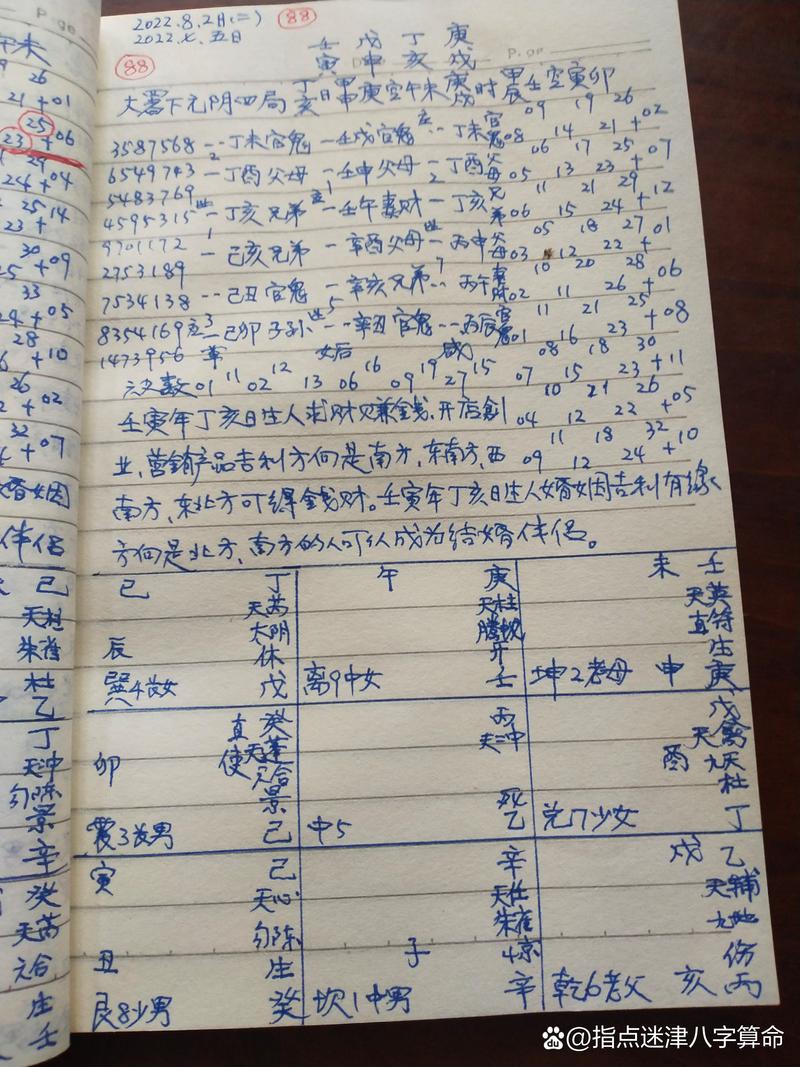 2022.8.2日(二) 88
2022.七.五日
88
壬 戊 丁 庚
寅 申 亥 戌
大暑下元阴四局 丁亥日甲申庚空午未庚戌时甲辰壬空寅卯
09 19 26
3587568 -- 丁未官鬼 - 壬戌官鬼 应 -- 丁未官鬼 08 14 21 +02
6549743 - 丁酉父母 - 壬申父母 - 丁酉父母 05 13 23 +07
06 17 25
5483769
4595315 世 - 丁亥兄弟 - 壬午妻财 - 丁亥兄弟 06 15 24 +12
11 21 29
9701172 - 己亥兄弟 - 辛酉父母 世 - 丙申父母 03 12 22 +
05 18 27 01
2753189
10 20 28
7534138 -- 己丑官鬼 - 辛亥兄弟 -- 丙午妻财 02 11 26 +06
8354169 应 - 己卯子孙 -- 辛丑官鬼 -- 丙辰官鬼 01 16 23 +08
11 21 25
1473956 革 姤后 咸 08 18 30
六爻数 01 11 02 12 13 06 16 09 19 27 15 07 15 23 +11
10 21 26
壬寅年丁亥日生人求财见赚钱.开店创 04 12 22 +05
11 18 32
业,营销产品吉利方向是南方,东南方,西 09 12 24 +10
南方,东北方可得金钱财。壬寅年丁亥日生人婚姻因吉利有缘
方向是北方,南方的人可以成为结婚伴侣。
巳 丁 午 庚 未 壬
天芮 天柱 天英
太阴 腾蛇 直符
辰 休 开 生
巽4长女 戊 离9中女 壬 坤2老母 申 庚
直 癸 丙 戊
使 天蓬 天冲 天禽
卯 六合 酉 九天
景 死 杜
震3长男 己 中5 乙 兑7少女 丁
寅 己 辛 戌 乙
天心 天任 天辅
勾陈 朱雀 九地
丑 生 子 惊 伤
艮8少男 癸 坎1中男 辛 乾6老父 亥 丙
26
21 +01
25
23 +06
29
24 +04
25 14
23 +
30
25 +09
33
24 +05
28
+10
26
+02
32
+07
婚姻
伴侣
己
天柱
朱雀
杜
乙
丁
天冲
勾陈
景
辛
癸
天芮
六合
生
壬
@指点迷津八字算命